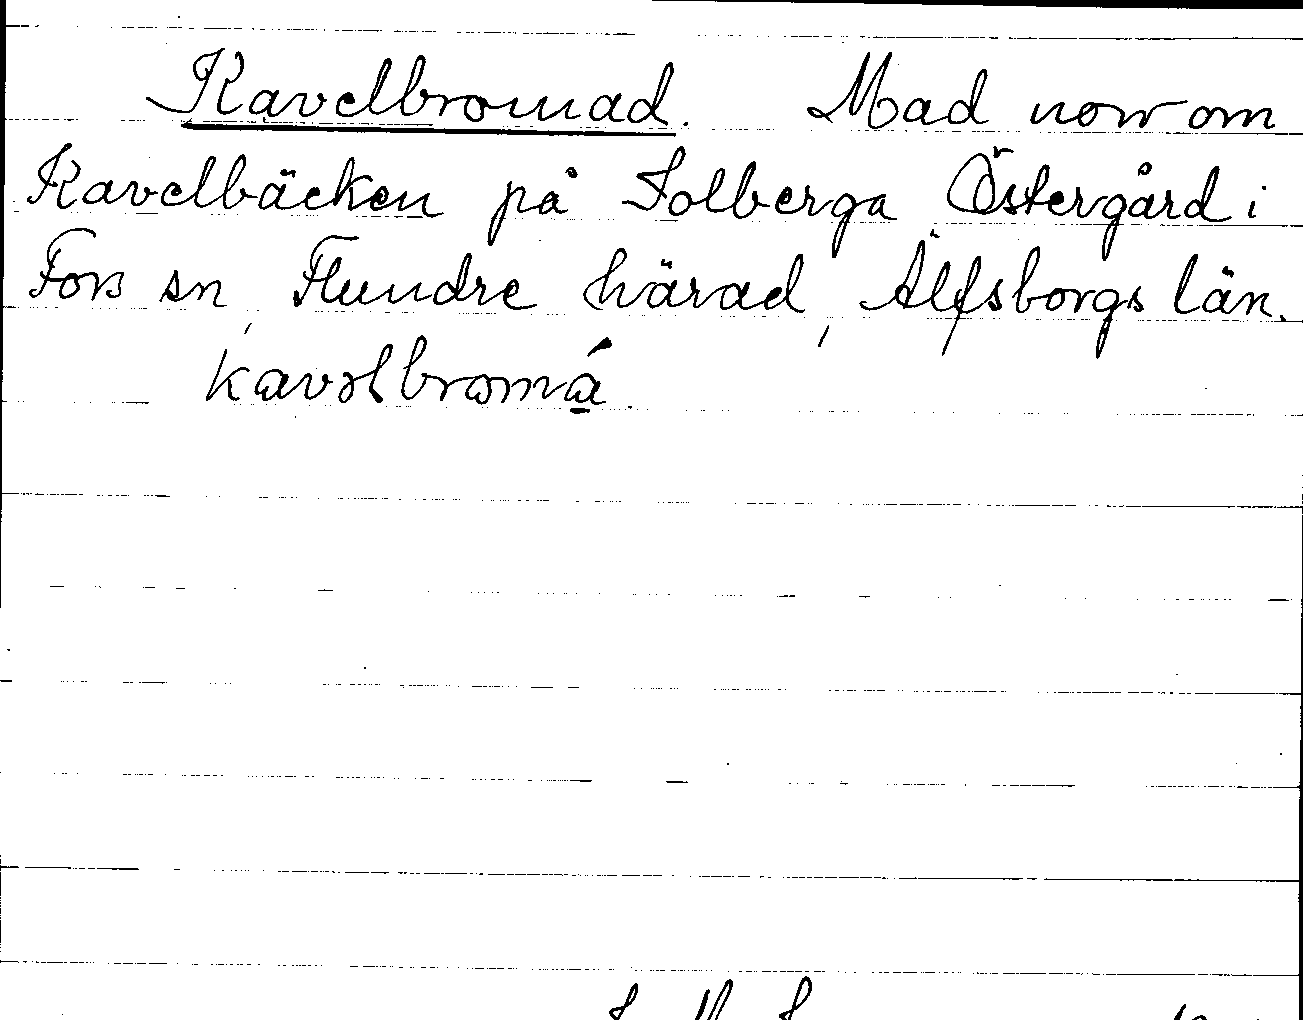 Kavelbromad. Mad norr om
Kavelbäcken på Solberga Östergård i
Fors sn, Flundre härad, Älfsborgs län.
kavəlbromá